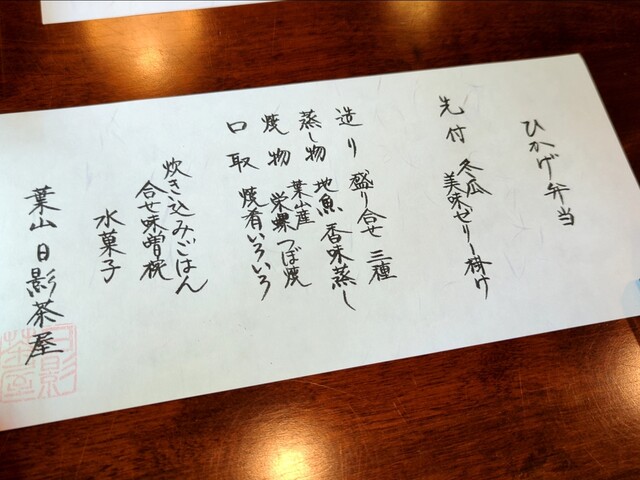 ひかげ弁当
先付 冬瓜
美味ゼリー掛け
造り 盛り合せ 三種
蒸し物 地魚 香味蒸し
焼物 葉山産
栄螺つぼ焼
口取 焼肴いろいろ
炊き込みごはん
合せ味噌椀
水菓子
葉山日影茶屋
日影茶屋